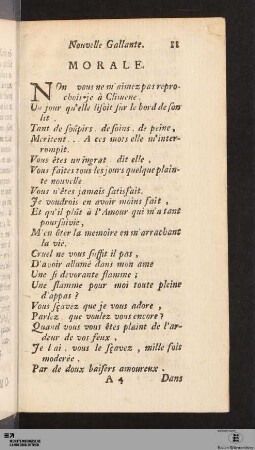 Nouvelle Gallante. 11
MORALE.
NOn vous ne m'aimez pas repro-
chois-je à Climene.
Un jour qu'elle lisoit sur le bord de son
lit.
Tant de soûpirs. de soins. de peine,
Meritent... A ces mots elle m'inter-
rompit.
Vous êtes un ingrat. dit elle,
Vous faites tous les jours quelque plain-
te nouvelle
Vous n'êtes jamais satisfait.
Je voudrois en avoir moins fait,
Et qu'il plût à l'Amour qui m'a tant
poursuivie,
M'en ôter la memoire en m'arrachant
la vie.
Cruel ne vous suffit il pas,
D'avoir allumé dans mon ame
Une si devorante flamme;
Une flamme pour moi toute pleine
d'appas?
Vous sçavez que je vous adore,
Parlez. que voulez vous encore?
Quand vous vous êtes plaint de l'ar-
deur de vos feux,
Je l'ai. vous le sçavez, mille fois
moderée.
Par de doux baisers amoureux.
A 4 Dans